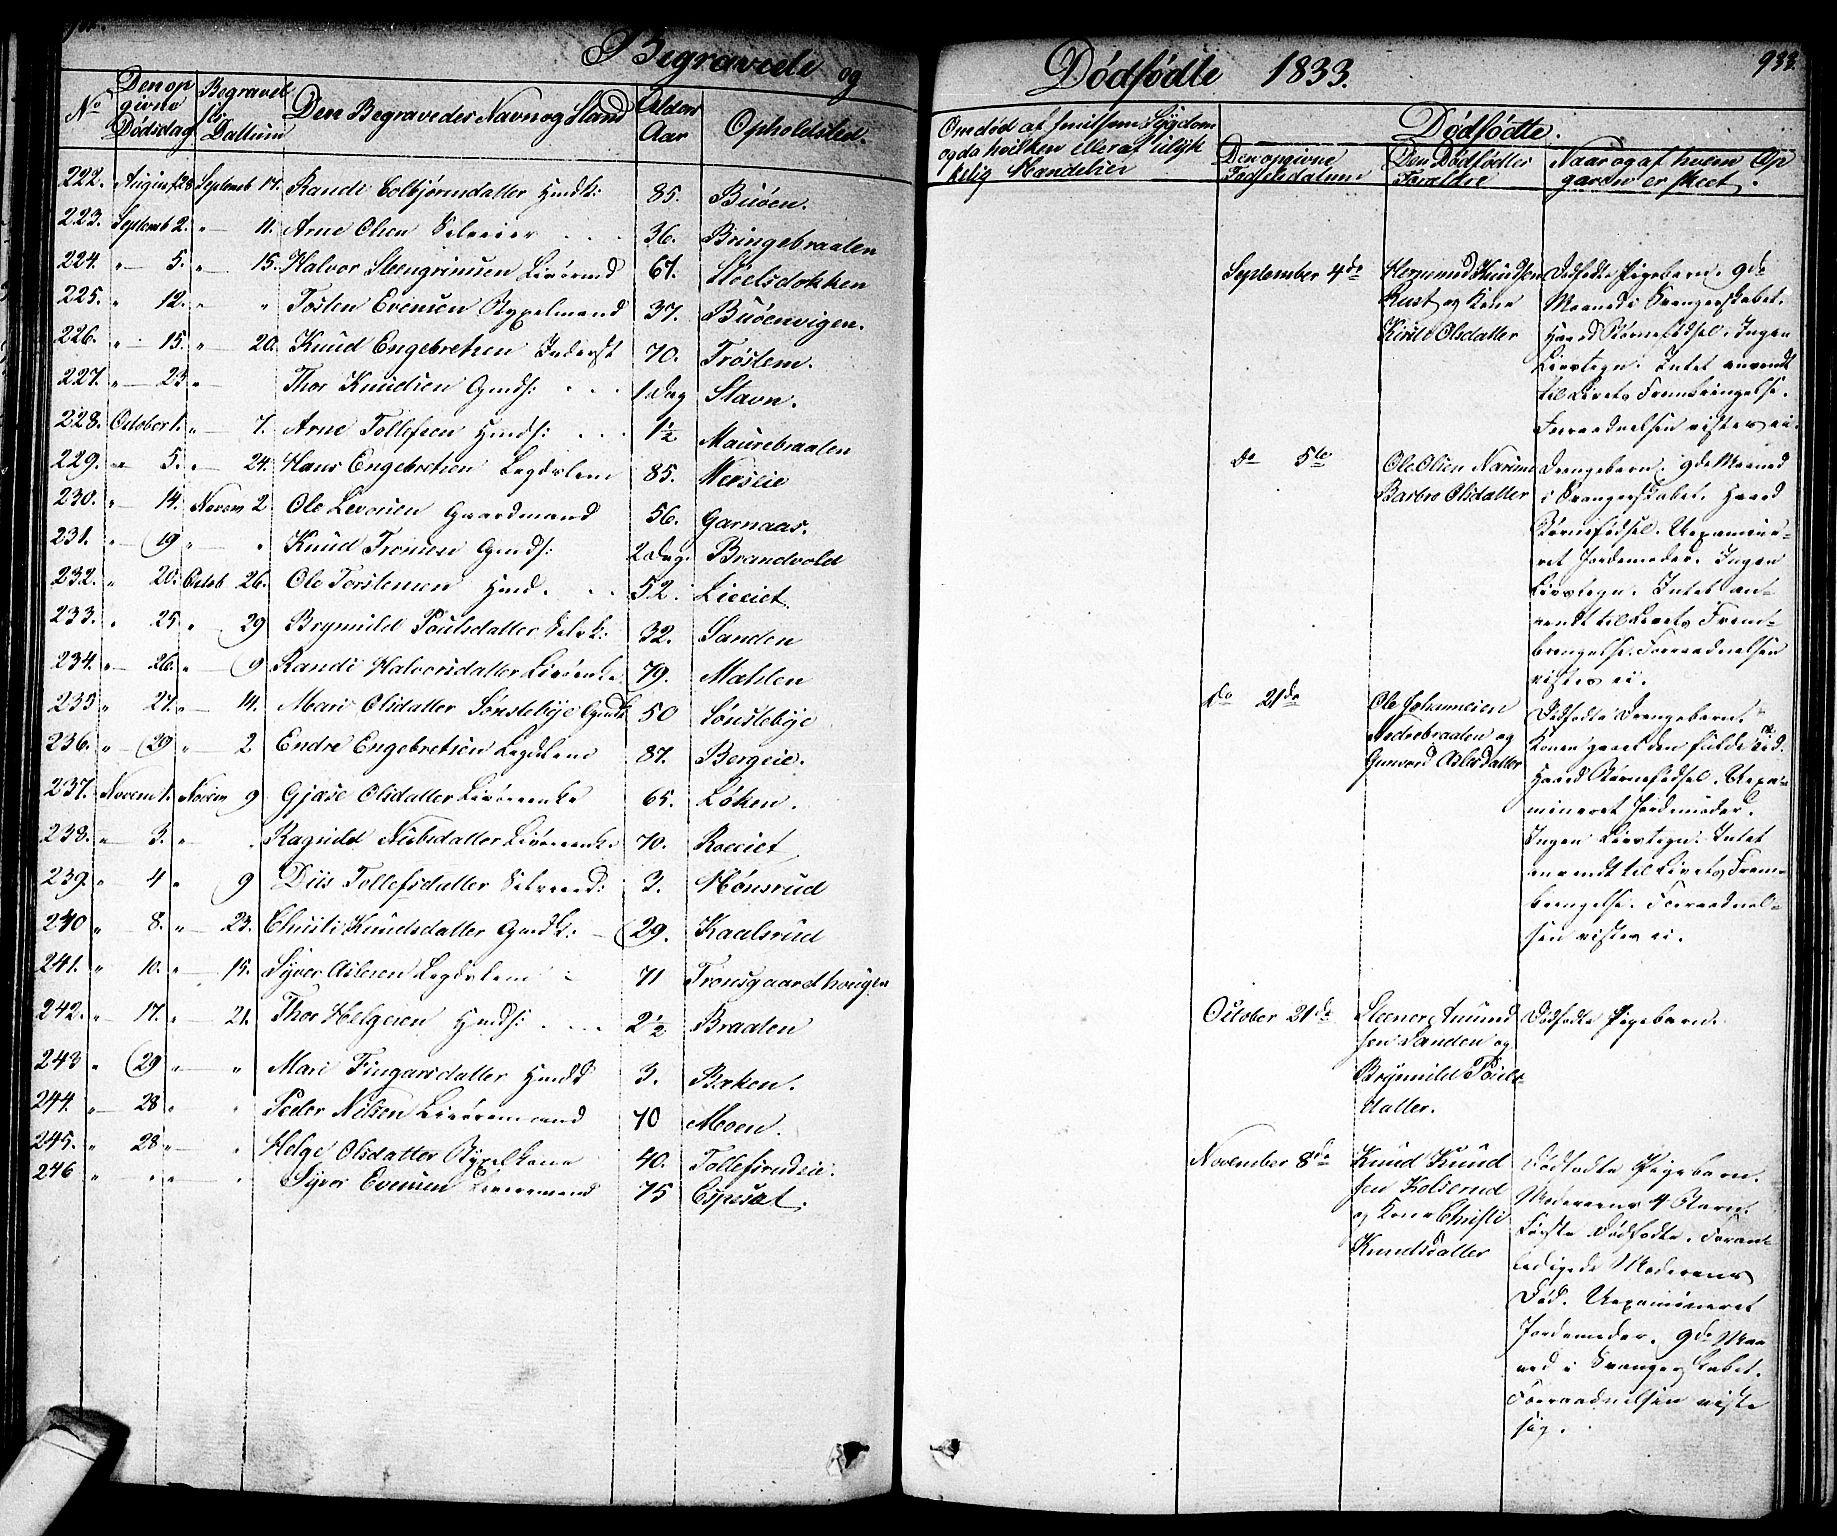 Begravede og
No
Den opgivne Dødsdag
Begravelses Dattum
Den Begravedes Navn og Stand
Alder Aar
Opholdsted.
222. August 28 Septemb 14. Randi Colbjørnsdatter Huusk: 85. Buøen.
223. Septemb 2. " 11. Arne Olsen Selveier 36. Bringebraaten
224. " 5. " 15. Halvor Steengrimsen 67. Støelsdokken
225. " 12. " " Tosten Evensen 37. Buøenvigen.
226. " 15. " 20. Knud Engebretsen Inderst 70. Trøstem.
227. " 23 " Thor Knudsen Gmds: 1 Dag Stavn.
228. October 1. " 7. Arne Tollefsen Hmds: 1½ Maurebraaten
229. " 5. " 24. Hans Engebretsen Legdslem 85. Merseie
230. " 14. Novem 2. Ole Levorsen Gaardmand 56. Garnaas.
231. " 19 " " Knud Tronsen Gmds: 2 Dag. Brandvold
232. " 20. Octob 26. Ole Torstensen Hmd. 52. Lieeiet
233. " 25 " 29 Brynnild Poulsdatter Selvk: 32. Sanden
234. " 26. " 9 Randi Halvorsdatter 79. Mæhlen
235 " 27. " 14. Mari Olsdatter Sønstebye Gmdk 50 Sønstebye
236. " 29 " 2 Endre Engebretsen Legdslem 87. Bergeie.
237. Novem 1. Novem 9 Gjøse Olsdatter 65. Løken.
238. " 3. " . Ragnild Nubsdatter 70. Roeeiet
239. " 4 " 9 Diis Tollefsdatter 3. Mønsrud
240 " 8. " 23. Christi Knudsdatter Gmdk: 29. Kaalsrud
241. " 10. " 15. Syver Aslesen Legdslem 71 Tronsgaardhougen
242. " 17. " 21. Thor Helgesen Hmds: 2½ Braaten
243 " 29 " " Mari Fingarsdatter Hmdd 3. Bæken.
244. " 28 " " Peder Nilsen 70 Moen.
245. " 28 " " Helge Olsdatter 40. Tollefsrudeie.
246 " " " " Syver Evensen 75 Espesat.
Dødfødte 1833.
933.
Om død af smitsom Sygdom
og da hvilken eller af ulyk
kelig Hændelser
Dødfødte.
Den opgivne
Fødselsdatum
Den Dødfødtes
Forældre
Naar og af hvem Op
gaven er skeet.
September 4de
Hermund Knudsen
Rust og Kone
Kirsti Olsdatter
Dødfødte Pigebarn. 9de
Maaned i Svangerskabet.
Haard Børnefødsel. Ingen
Livstegn. Intet anvendt
til Livets Frembringelse.
Forraadnelsen vistes ei.
Do 5te
Ole Olsen
Barbro Olsdatter
Drengebarn. 9de Maaned
i Svangerskabet. Haard
Børnefødsel. Uexamine-
ret Jordemoder. Ingen
Livstegn. Intet an-
vendt til Livets Frem-
bringelse. Forraadnelsen
vistes ei.
Do 21de
Ole Johannesen
Nedrebraaten og
Gunvord Aslesdatter
Dødfødte Drengebarn.
Konen gaaet den fulde Tid.
Haard Børnefødsel. Uexa-
mineret Jordemoder.
Ingen Livstegn. Intet
anvendt til Livets Frem-
bringelse. Forraadnel-
sen vistes ei.
October 21de
Steener Amund
sen Sanden og
Brynnild Pouls
datter.
Dødfødte Pigebarn.
November 8de
Knud Knud
sen Kolsrud
og Kone Christi
Knudsdatter
Dødfødte Pigebarn.
Moderens 4 Barn.
Første Dødfødte. Foran-
ledigede Moderens
Død. Uexamineret
Jordemoder. 9de Maa
ned i Svangerskabet.
Forraadnelsen viste
sig.